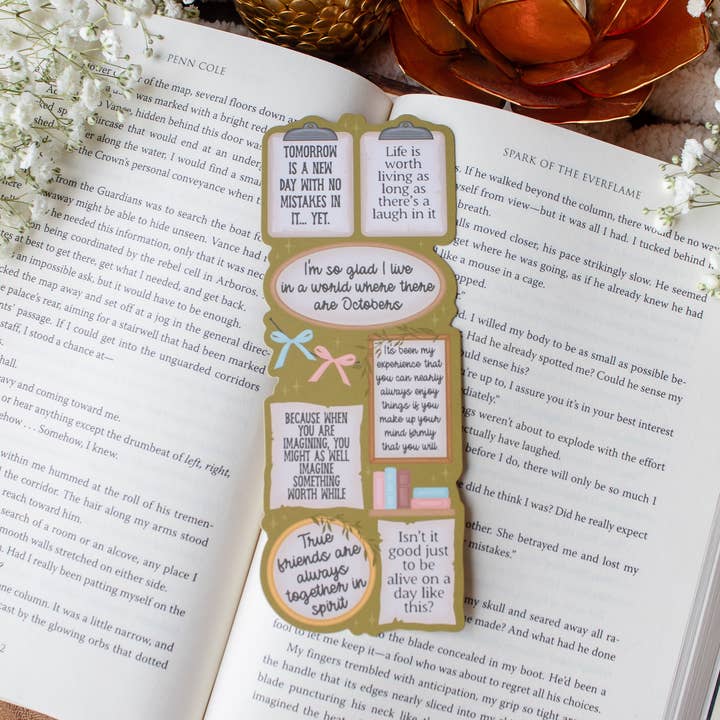 PENN COLE
of the map, several floors down a
was marked with a bright red
hidden behind this door was
staircase that would end at an underg
along the water. I would find a smal
the Crown's personal conveyance when t
from the Guardians was to search the boat f
away might be able to hide unseen. Vance had r
he needed this information, only that it was nec
being coordinated by the rebel cell in Arboros.
ates at best to get there, get what I needed, and get back.
an impossible ask, but it would have to be enough.
cked the map away and set off at a jog in the general direc-
e palace's rear, aiming for a stairwell that had been marked
ants' passage. If I could get into the unguarded corridors
staff, I stood a chance at—
hall.
eavy and coming toward me.
or hear anything except the drumbeat of left, right,
. . . Somehow, I knew.
within me hummed at the roll of his tremen-
d the corridor. The hair along my arms stood
reach toward him.
search of a room or an alcove, any place I
mooth walls stretched on either side.
Had I really been patting myself on the
ne column. It was a little narrow, and
cast by the glowing orbs that dotted
2
TOMORROW
IS A NEW
DAY WITH NO
MISTAKES IN
IT... YET.
Life is
worth
living as
long as
there's a
laugh in it
I'm so glad I live
in a world where there
are Octobers
It's been my
experience that
you can nearly
always enjoy
things if you
make up your
mind firmly
that you will
BECAUSE WHEN
YOU ARE
IMAGINING, YOU
MIGHT AS WELL
IMAGINE
SOMETHING
WORTH WHILE
True
friends are
always
together in
spirit
Isn't it
good just
to be
alive on a
day like
this?
SPARK OF THE EVERFLAME
If he walked beyond the column, there would be no wa
yself from view—but it was all I had. I tucked behind
breath.
falls moved closer, his pace skirting slowly. He seemed
get where he was going, as if he already knew he had
like a mouse in a cage.
d. I willed my body to be as small as possible be-
Had he already spotted me? Could he sense my
ould sense his?
you're up to, I assure you it's in your best interest
ediately."
ngs weren't about to explode with the effort
ctually have laughed.
before I do, there will only be so much I
he did he think I was? Did he really expect
other. She betrayed me and lost my
mistakes."
my skull and seared away all ra-
he made? And what had he done
fool to let me keep it—a fool who was about to regret all his choices.
to the blade concealed in my boot. He'd been a
My fingers trembled with anticipation, my grip so tight
the handle that its edges nearly sliced into my
blade puncturing his neck like the
imagined the heat of